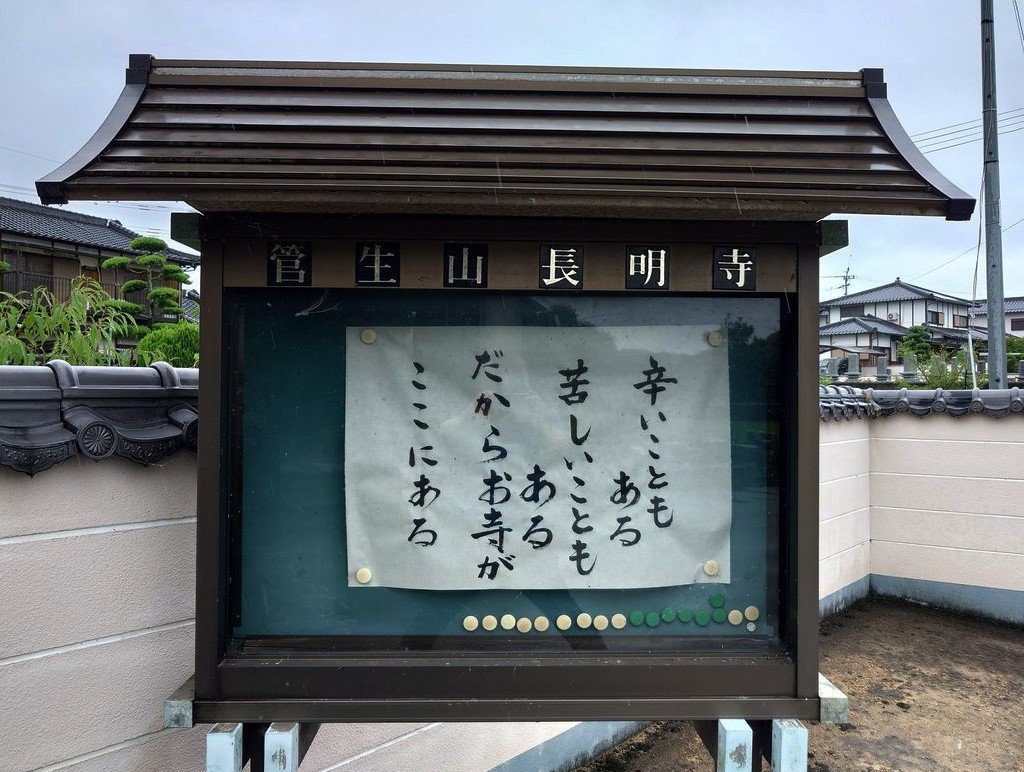 管生山長明寺
辛いことも
ある
苦しいことも
ある
だからお寺が
ここにある